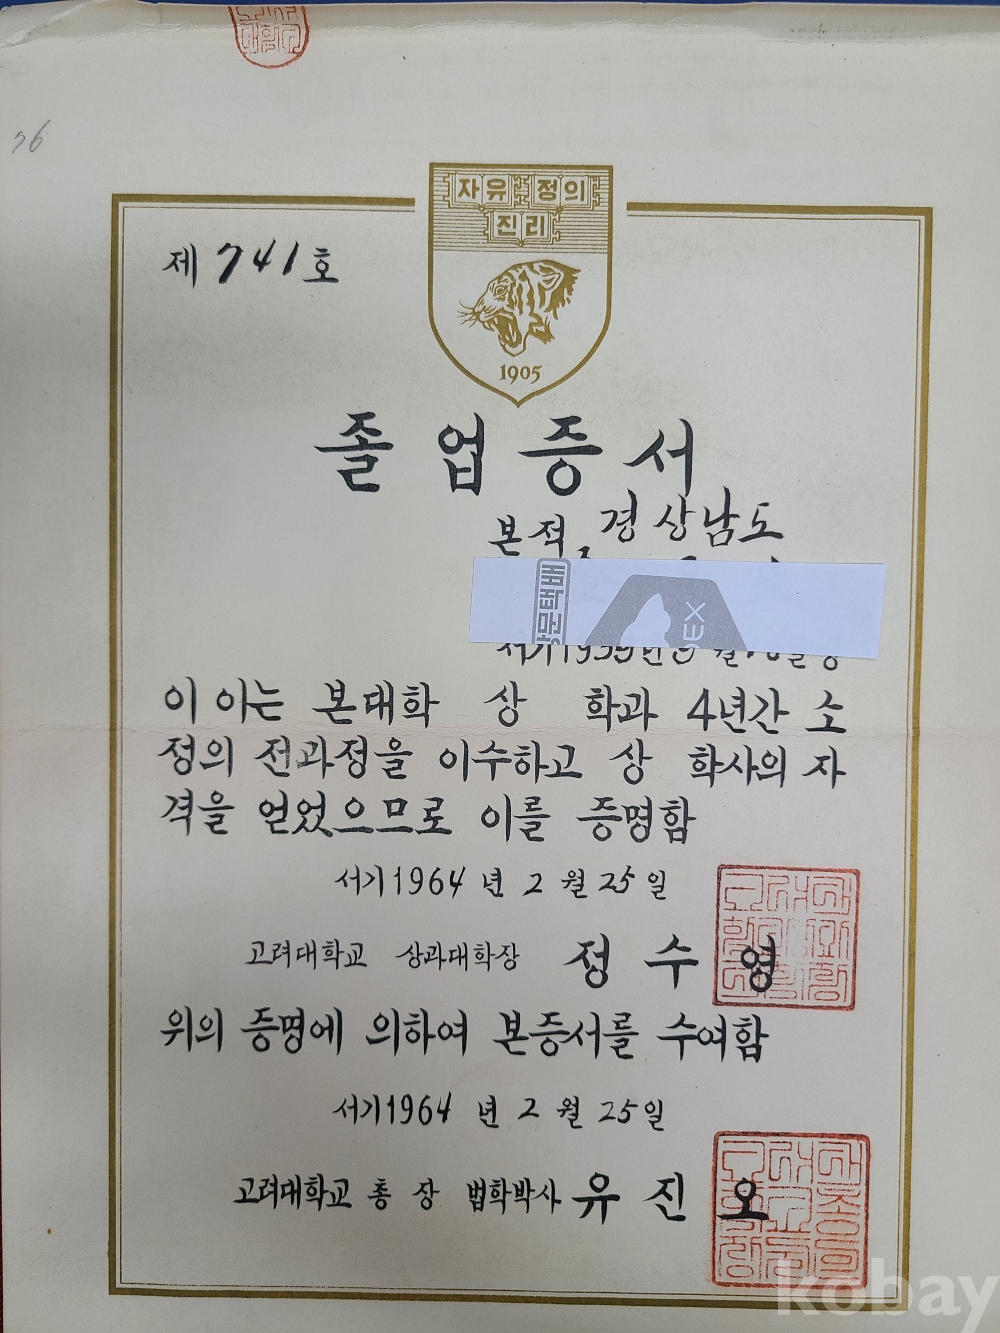 76
자유 정의
진리
제 741 호
1905
졸업증서
본적 경상남도
이 이는 본대학 상 학과 4년간 소
정의 전과정을 이수하고 상 학사의 자
격을 얻었으므로 이를 증명함
서기1964 년 2 월 25 일
고려대학교 상과대학장 정수영
위의 증명에 의하여 본증서를 수여함
서기1964 년 2 월 25 일
고려대학교 총 장 법학박사 유진오
kobay